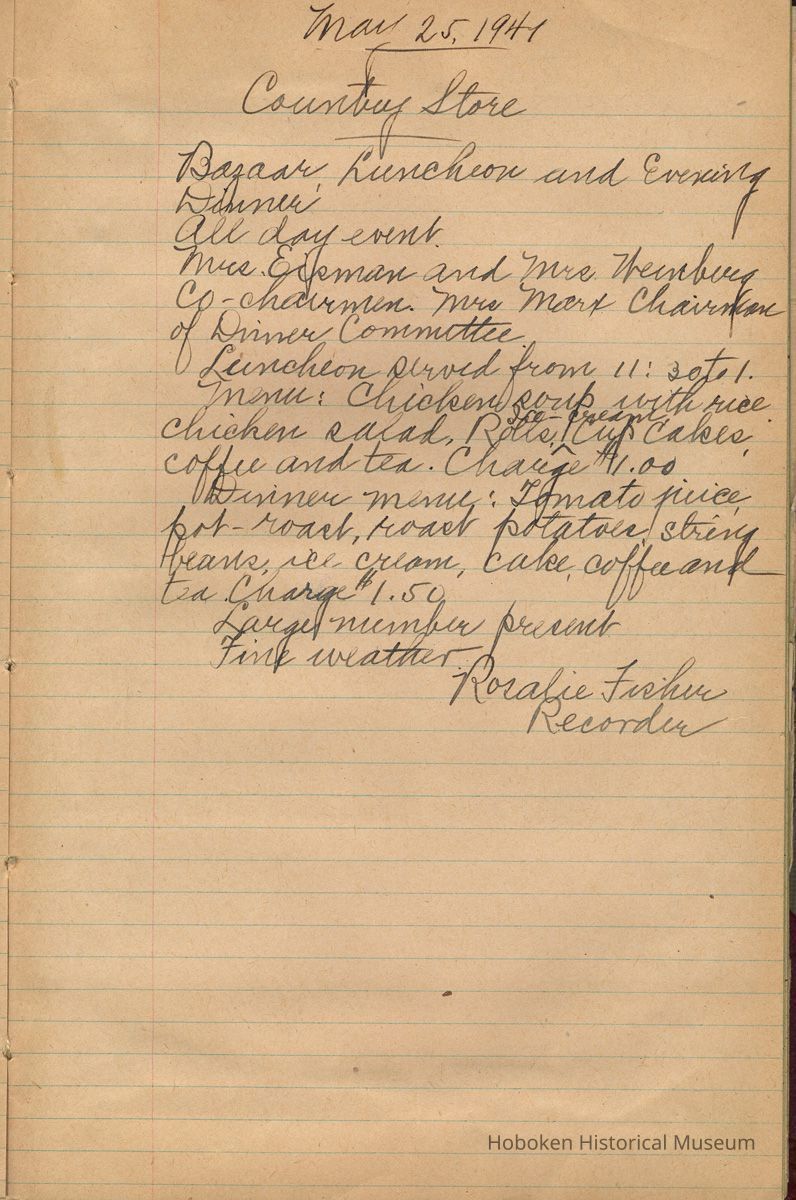 May 25, 1941
Country Store
Bazaar, Luncheon and Evening
Dinner
All day event.
Mrs. Eisman and Mrs. Weinberg
Co-chairmen. Mrs Marx Chairman
of Dinner Committee
Luncheon served from 11:30 to 1.
Menu: Chicken soup with rice
Ice-cream
chicken salad, Rolls, Cup Cakes,
coffee and tea. Charge $1.00
Dinner menu: Tomato juice,
pot-roast, roast potatoes, string
beans, ice cream, cake, coffee and
tea. Charge $1.50
Large number present
Fine weather.
Rosalie Fisher
Recorder
Hoboken Historical Museum